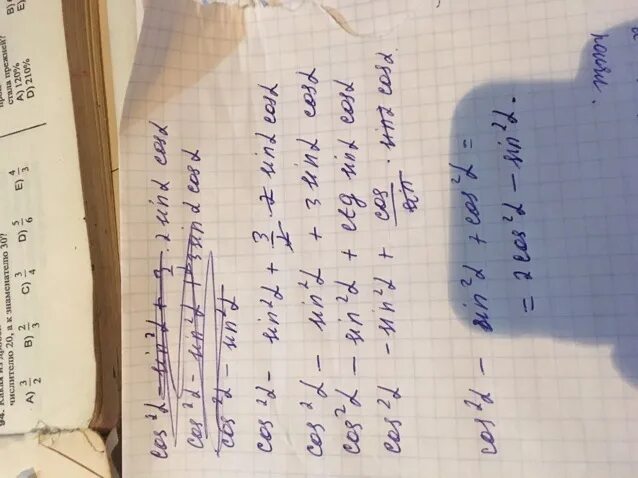 числителю 20, а к знаменателю 30?
A) 3/2 B) 2/3 C) 3/4 D) 5/6 E) 4/3
стала прежней?
A) 120% B)
D) 210% E)
cos²α - sin²α + 3 · 2 sinα cosα
cos²α - sin²α + 3 sinα cosα
cos²α - sin²α
cos²α - sin²α + 3/2 · 2 sinα cosα
cos²α - sin²α + 3 sinα cosα
cos²α - sin²α + ctg sinα cosα
cos²α - sin²α + cos/sin · sinα cosα.
cos²α - sin²α + cos²α =
= 2cos²α - sin²α.